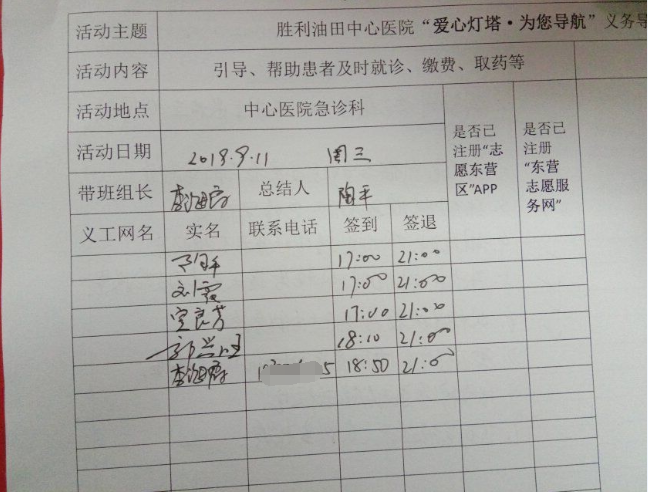 活动主题 胜利油田中心医院“爱心灯塔·为您导航”义务导
活动内容 引导、帮助患者及时就诊、缴费、取药等
活动地点 中心医院急诊科
是否已注册“志愿东营区”APP
是否已注册“东营志愿服务网”
活动日期 2019.9.11 周三
带班组长 总结人 陶平
义工网名 实名 联系电话 签到 签退
17:00 21:00
刘霞 17:00 21:00
17:00 21:00
18:10 21:00
18:50 21:00